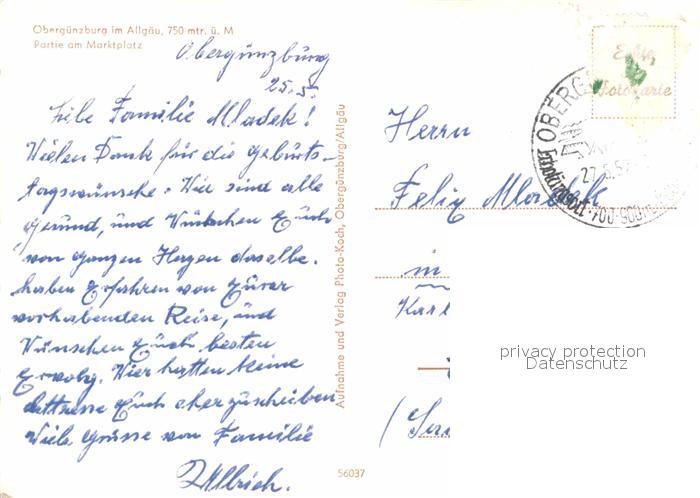 Obergünzburg im Allgäu, 750 mtr. ü. M
Partie am Marktplatz
Obergünzburg
25.5.
Liebe Familie Mladek!
Vielen Dank für die Geburts-
tagswünsche. Wir sind alle
gesund, und Wünschen Euch
von ganzen Herzen dasselbe.
haben Erfahren von Eurer
vorhabenden Reise, und
Wünschen Euch besten
Erfolg. Wir hatten keine
Euch eher zuschreiben
Viele Grüsse von Familie
Ullrich.
Aufnahme und Verlag Photo-Koch, Obergünzburg/Allgäu
56037
Echte
Fotokarte
OBERG
27.5.5
Herrn
Felix Mladek
in
Karl
privacy protection
Datenschutz